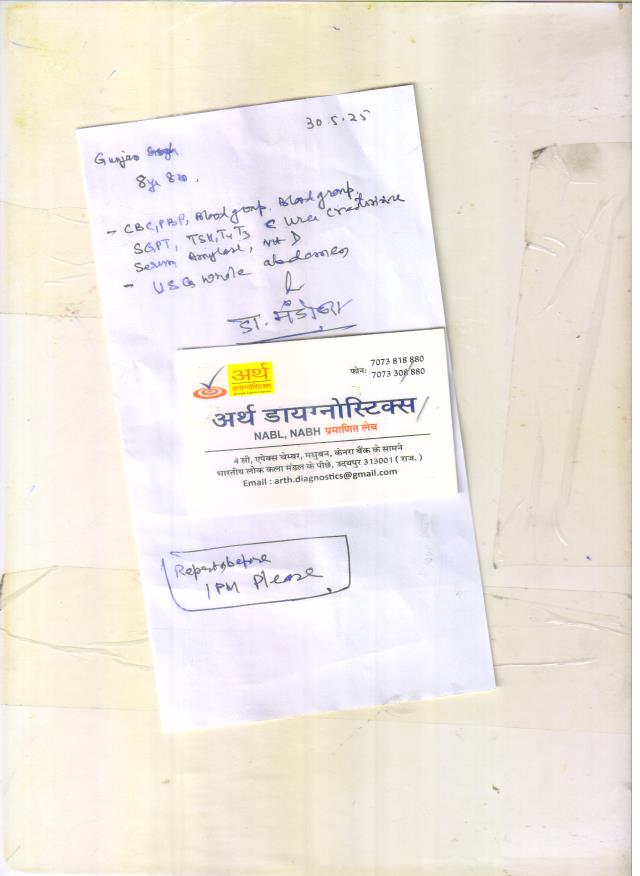 30.5.25
Gunjan Singh
8 yr
- CBC, PBP, Blood group. Blood group,
SGPT, TSH, T4 T3 c Urea Creatinine
Serum Amylase, vit D
- USG whole abdomen
डा.
7073 818 880
फोन: 7073 308 880
अर्थ
डायग्नोस्टिक्स
अर्थ डायग्नोस्टिक्स
NABL, NABH प्रमाणित लेब
4 सी, एपेक्स चेम्बर, मधुबन, केनरा बैंक के सामने
भारतीय लोक कला मंडल के पीछे, उदयपुर 313001 ( राज. )
Email : arth.diagnostics@gmail.com
Reports before
1 PM Please